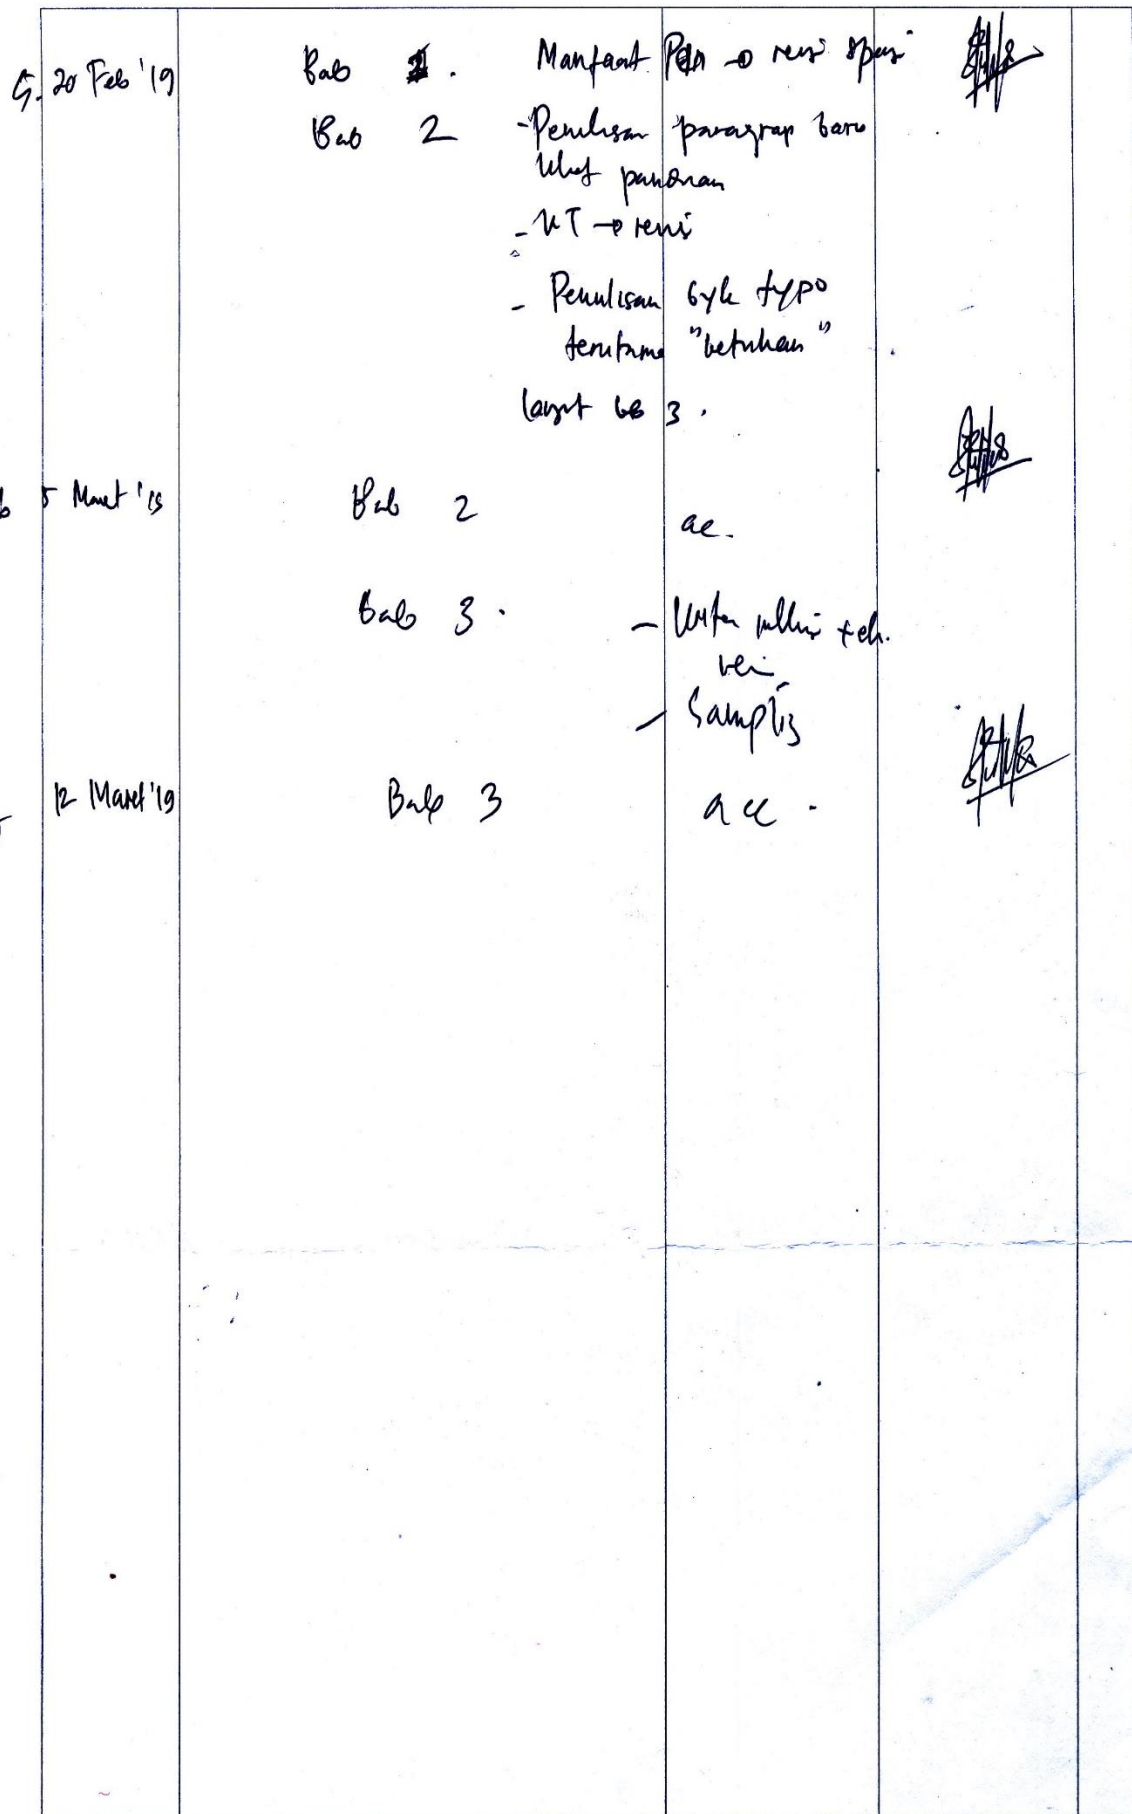 5. 20 Feb '19 Bab 1. Manfaat Pen → revisi spasi
Bab 2 - Penulisan paragrap baru
lihat panduan
- KT → revisi
- Penulisan byk typo
terutama "betuhan"
lanjut bb 3.
6 5 Maret '19 Bab 2 acc.
Bab 3. -
- Sampling
12 Maret '19 Bab 3 acc.